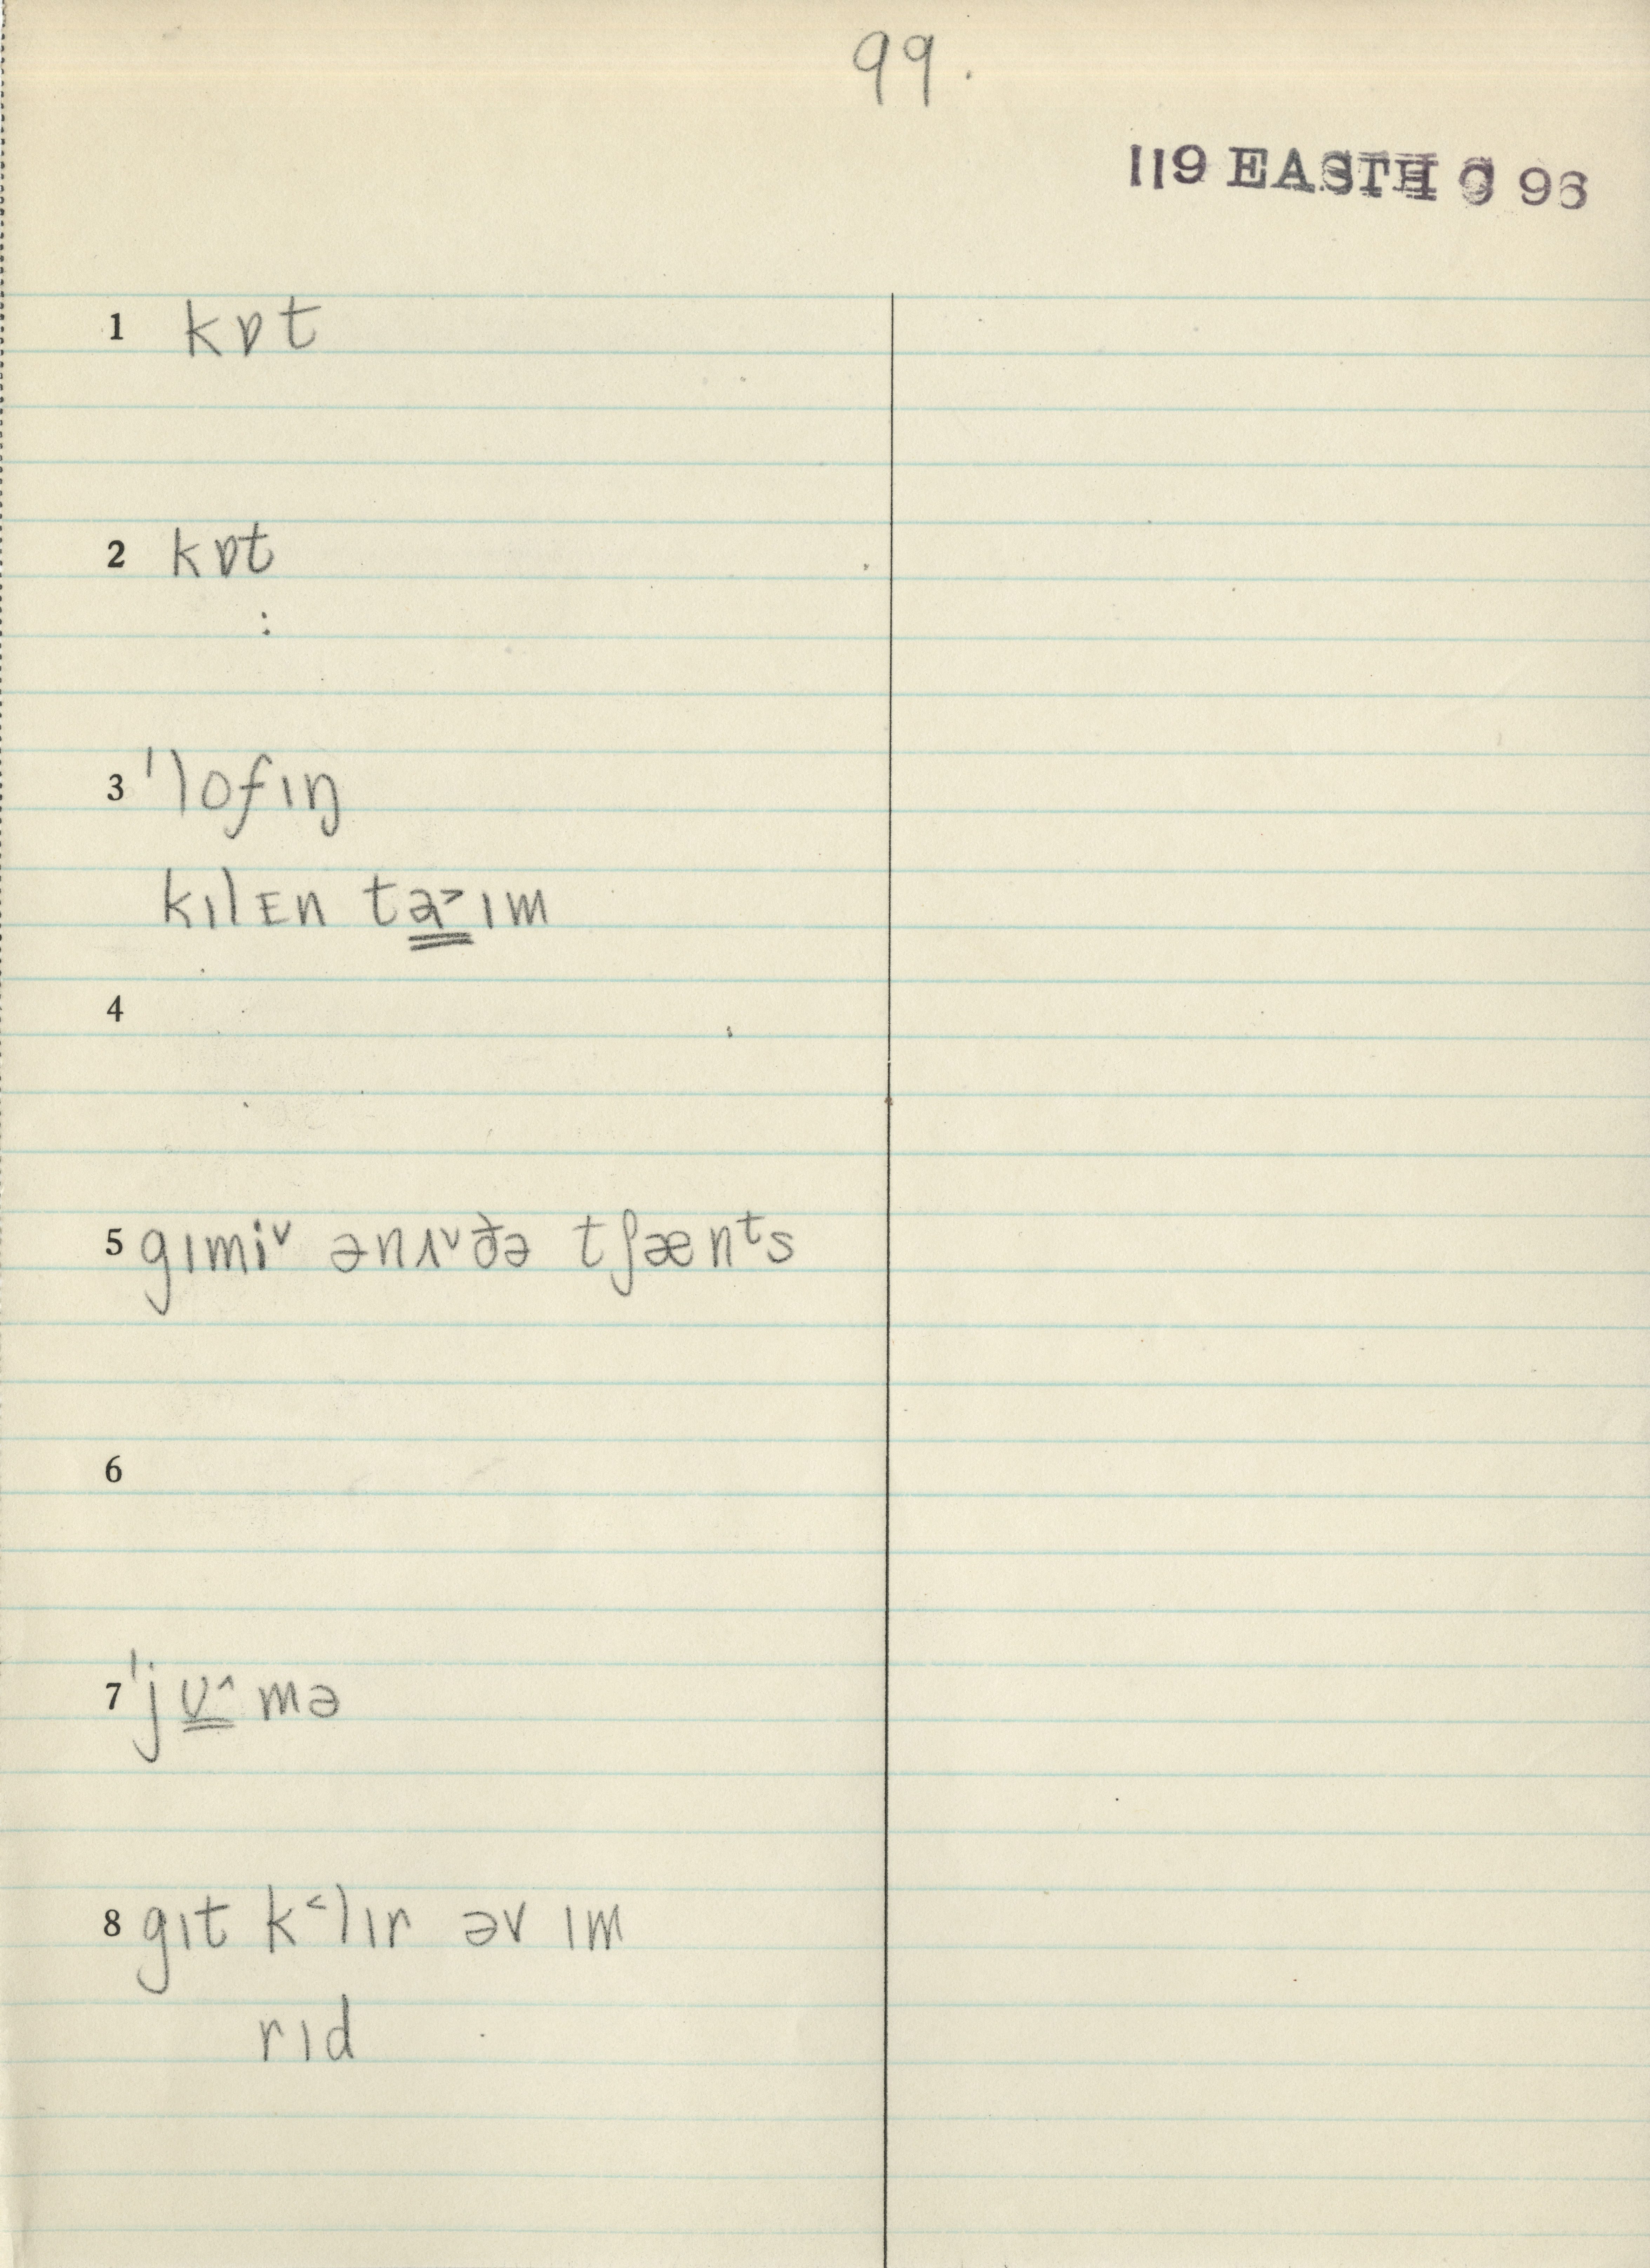 99.
119 EASTH G 96
1 kɒt
2 kɒt
:
3 'lofɪŋ
kɪlᴇn ta˃ɪm
4
5 gɪmi˅ ənʌ˅ðə tʃænᵗs
6
7 'jʊ˄mə
8 gɪt k˂lɪr əv ɪm
rɪd